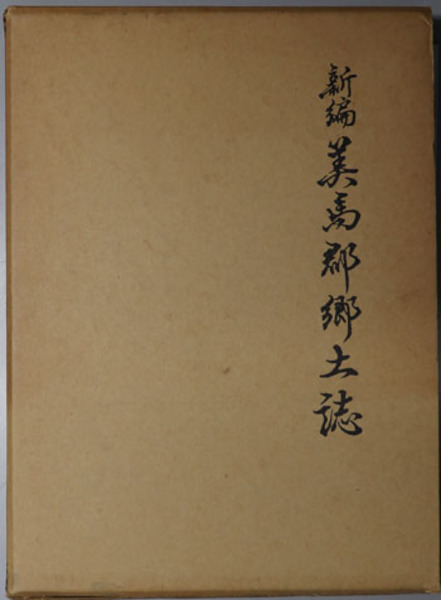 新編美馬郡郷土誌